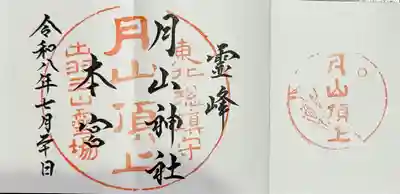 霊峰
東北総鎮守
月山神社
月山頂上
本宮
出羽三山霊場
令和八年七月二十日
月山頂上